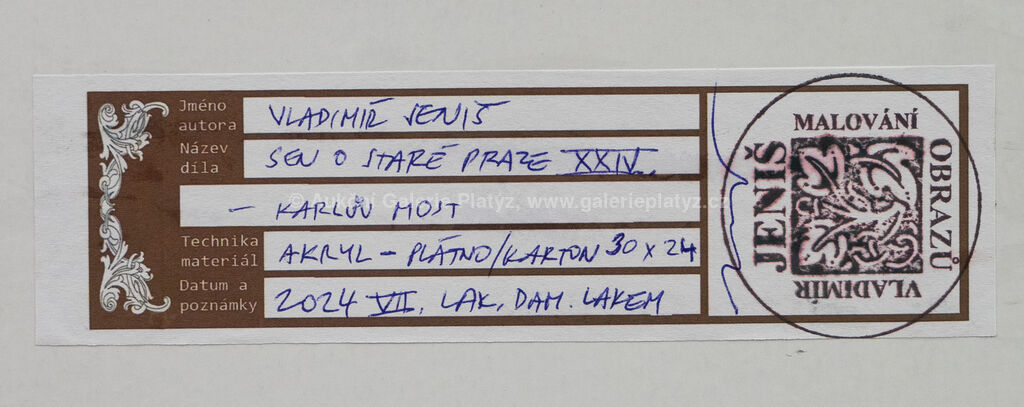 Jméno autora
VLADIMÍR JENIŠ
Název díla
SEN O STARÉ PRAZE XXIV.
– KARLŮV MOST
© Aukční Galerie Platýz, www.galerieplatyz.cz
Technika materiál
AKRYL – PLÁTNO/KARTON 30 x 24
Datum a poznámky
2024 VII. LAK. DAM. LAKEM
MALOVÁNÍ
OBRAZŮ
VLADIMÍR
JENIŠ